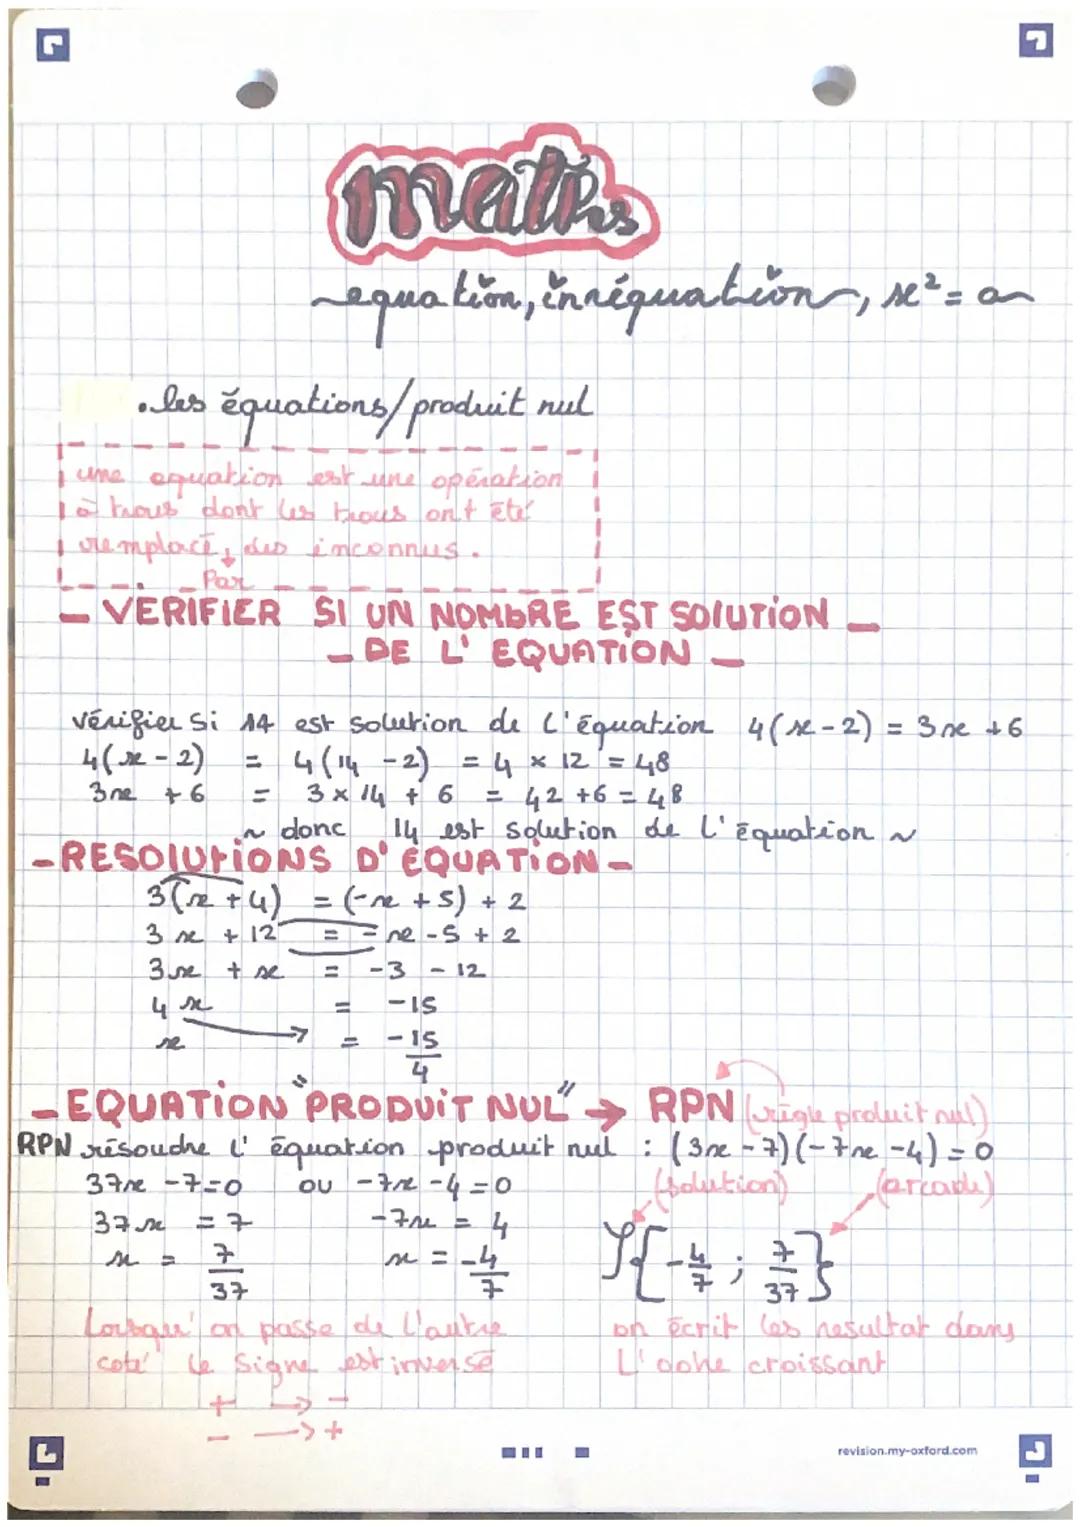 maths
equation, inréquation, x² = a
. les équations/produit nul
une equation est une opération
à trous dont les trous ont été
remplacé, des inconnus.
Par
- VERIFIER SI UN NOMBRE EST SOlUTiON -
- DE L' EQUATiON -
vérifier si 14 est solution de l'équation 4(x-2) = 3x +6
4(x-2) = 4(14 -2) = 4 × 12 = 48
3x + 6 = 3 × 14 + 6 = 42 +6 = 48
~ donc 14 est solution de l'équation ~
- RESOlUtiONS D' EQUATiON -
3(x +4) = (-x +5) + 2
3x + 12 = -x -5 + 2
3x + x = -3 - 12
4x = -15
x = -15/4
- EQUATiON "PRODUiT NUL" → RPN (règle produit nul)
RPN résoudre l' équation produit nul : (3x -7)(-7x -4) = 0
37x -7=0 ou -7x -4 = 0 (solution) (arcade)
37x = 7 -7x = 4
x = 7/37 x = -4/7 S{-4/7 ; 7/37}
Lorsqu' on passe de l'autre
coté le signe est inversé
+ → -
- → +
on écrit les resultat dans
L'odre croissant
revision.my-oxford.com